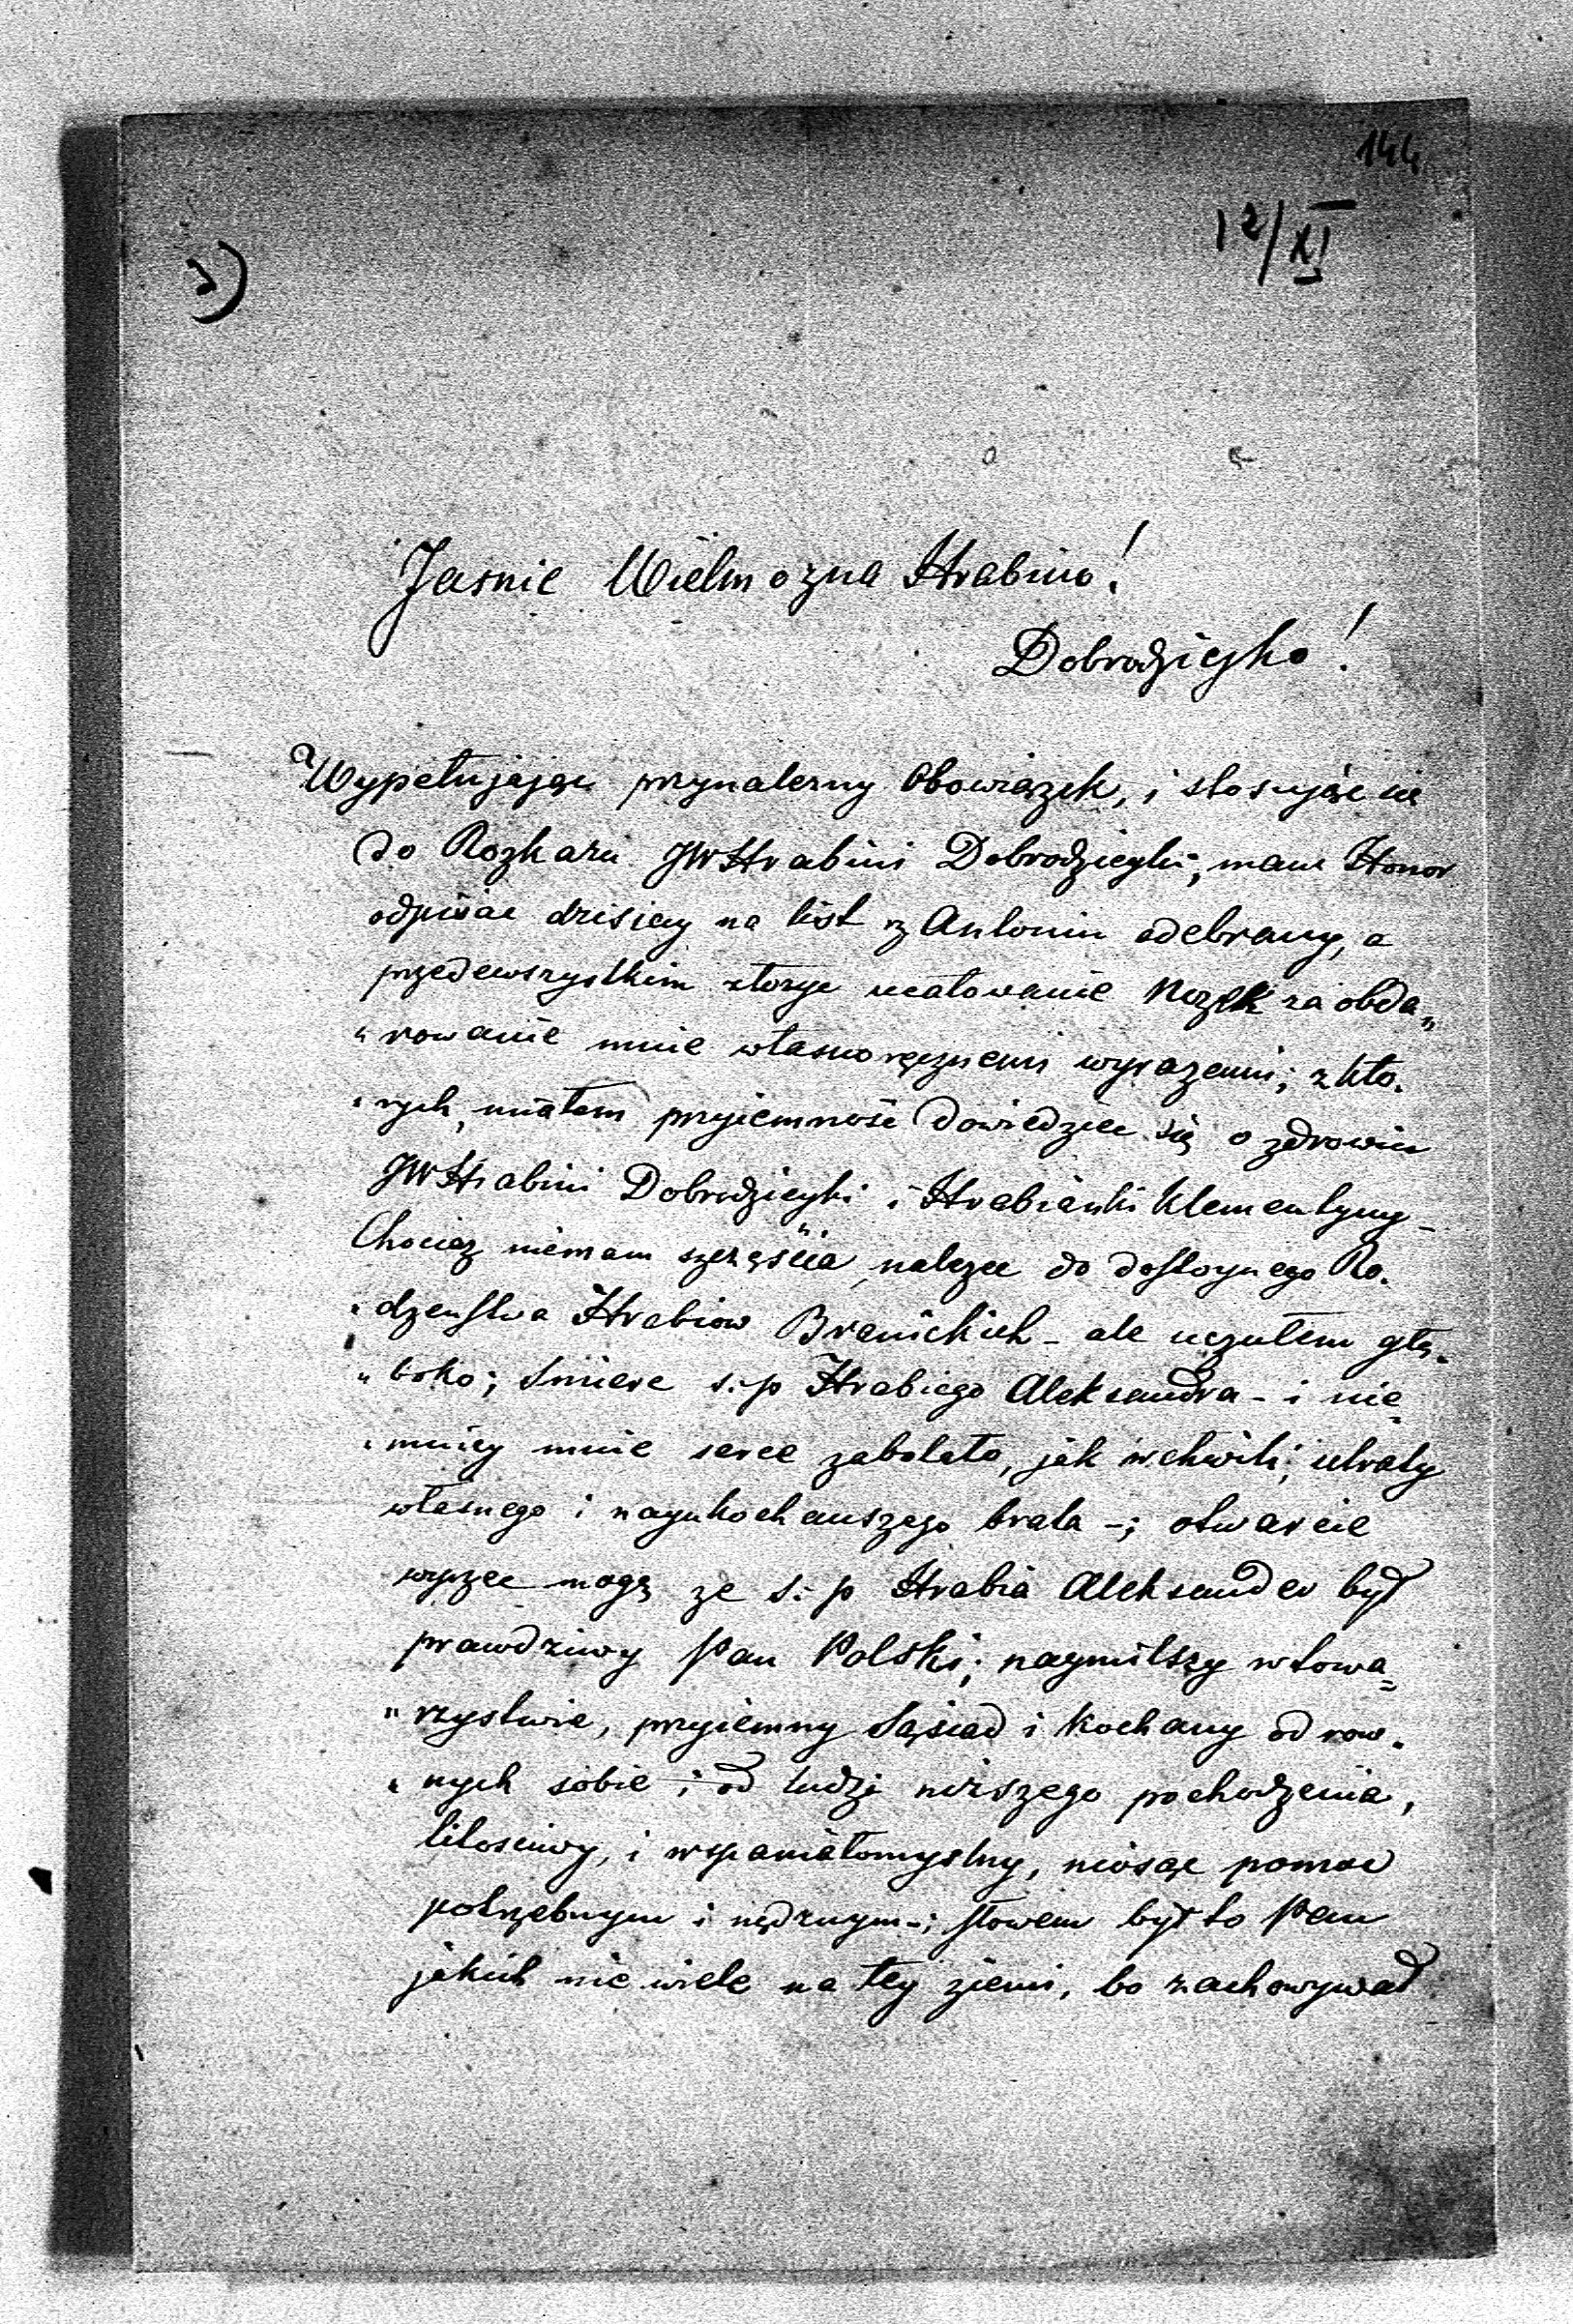 144
12/XI
2)
Jasnie Wielmozna Hrabino!
Dobrodzieyko!
Wypełniając przynalezny Obowiązek, i stosując się
do Rozkazu JWHrabini Dobrodzieyki, mam Honor
odpisac dzisiay na list z Antonin odebrany, a
przedewszystkim złozyc ucałowanie Nozek za obda„
„rowanie mnie własnoręcznemi wyrazemi; z kto.
„rych, miałem przyiemnośc dowiedziec się o zdrowiu
JWHrabini Dobrodzieyki i Hrabianki Klementyny -
Chociaz niemam szczęścia, nalezec do dostoynego Ro.
„dzenstwa Hrabiow Branickich - ale uczułem głę.
„boko; Smierc s:p Hrabiego Aleksandra - i nie
„mniey mnie serce zabolało, jak w chwili, utraty
własnego i nayukochanszego brata -; otwarcie
wyrzec mogę ze s:p Hrabia Aleksander był
prawdziwy Pan Polski; naymilszy w towa„
„rzystwie, przyiemny Sąsiad i Kochany od row.
„nych sobie i od ludzi niższego pochodzenia,
litosciwy, i wspaniałomyslny, niosąc pomoc
potrzebnym i nędznym -; słowem był to Pan
jakich nie wiele na tey ziemi, bo zachowywał